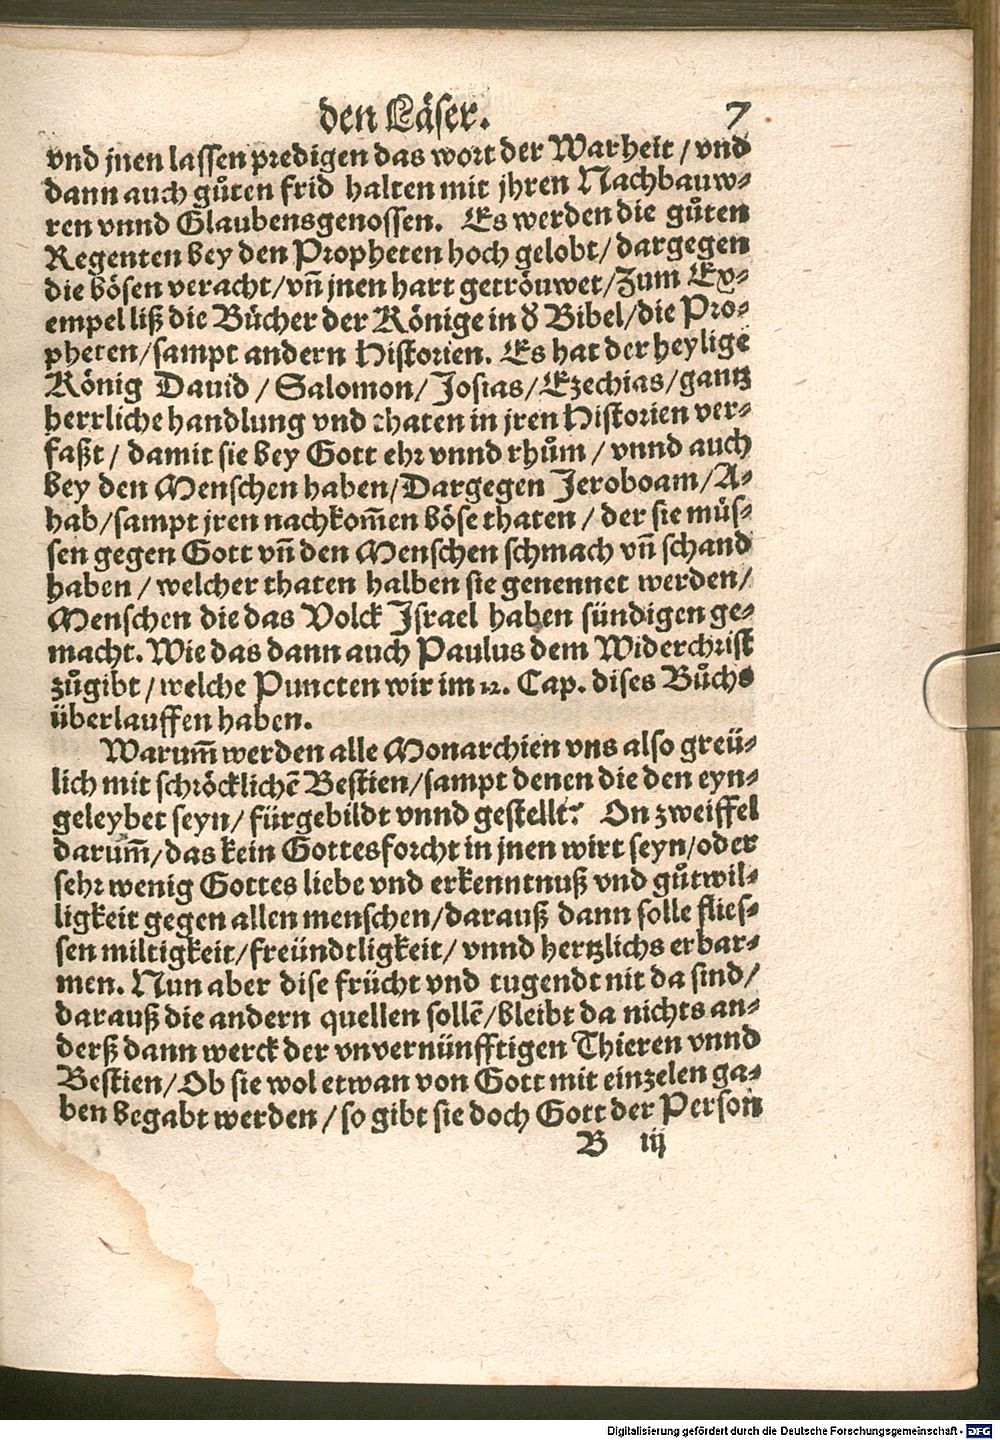 den Läser. 7
vnd jnen lassen predigen das wort der Warheit / vnd
dann auch gůten frid halten mit jhren Nachbauw⸗
ren vnnd Glaubensgenossen. Es werden die gůten
Regenten bey den Propheten hoch gelobt / dargegen
die bösen veracht / vñ jnen hart getröuwet / Zum Ex⸗
empel liß die Bücher der Könige in d' Bibel / die Pro⸗
pheten / sampt andern Historien. Es hat der heylige
König Dauid / Salomon / Josias / Ezechias / gantz
herrliche handlung vnd thaten in jren Historien ver⸗
faßt / damit sie bey Gott ehr vnnd rhům / vnnd auch
bey den Menschen haben / Dargegen Jeroboam / A⸗
hab / sampt jren nachkom̃en böse thaten / der sie müs⸗
sen gegen Gott vñ den Menschen schmach vñ schand
haben / welcher thaten halben sie genennet werden /
Menschen die das Volck Israel haben sündigen ge⸗
macht. Wie das dann auch Paulus dem Widerchrist
zůgibt / welche Puncten wir im 12. Cap. dises Bůchs
überlauffen haben.
Warum̃ werden alle Monarchien vns also greü⸗
lich mit schröcklichẽ Bestien / sampt denen die den eyn⸗
geleybet seyn / fürgebildt vnnd gestellt? On zweiffel
darum̃ / das kein Gottesforcht in jnen wirt seyn / oder
sehr wenig Gottes liebe vnd erkenntnuß vnd gůtwil⸗
ligkeit gegen allen menschen / darauß dann solle flies⸗
sen miltigkeit / freündtligkeit / vnnd hertzlichs erbar⸗
men. Nun aber dise frücht vnd tugendt nit da sind /
darauß die andern quellen sollẽ / bleibt da nichts an⸗
derß dann werck der vnvernünfftigen Thieren vnnd
Bestien / Ob sie wol etwan von Gott mit einzelen ga⸗
ben begabt werden / so gibt sie doch Gott der Person
B iij
Digitalisierung gefördert durch die Deutsche Forschungsgemeinschaft - DFG